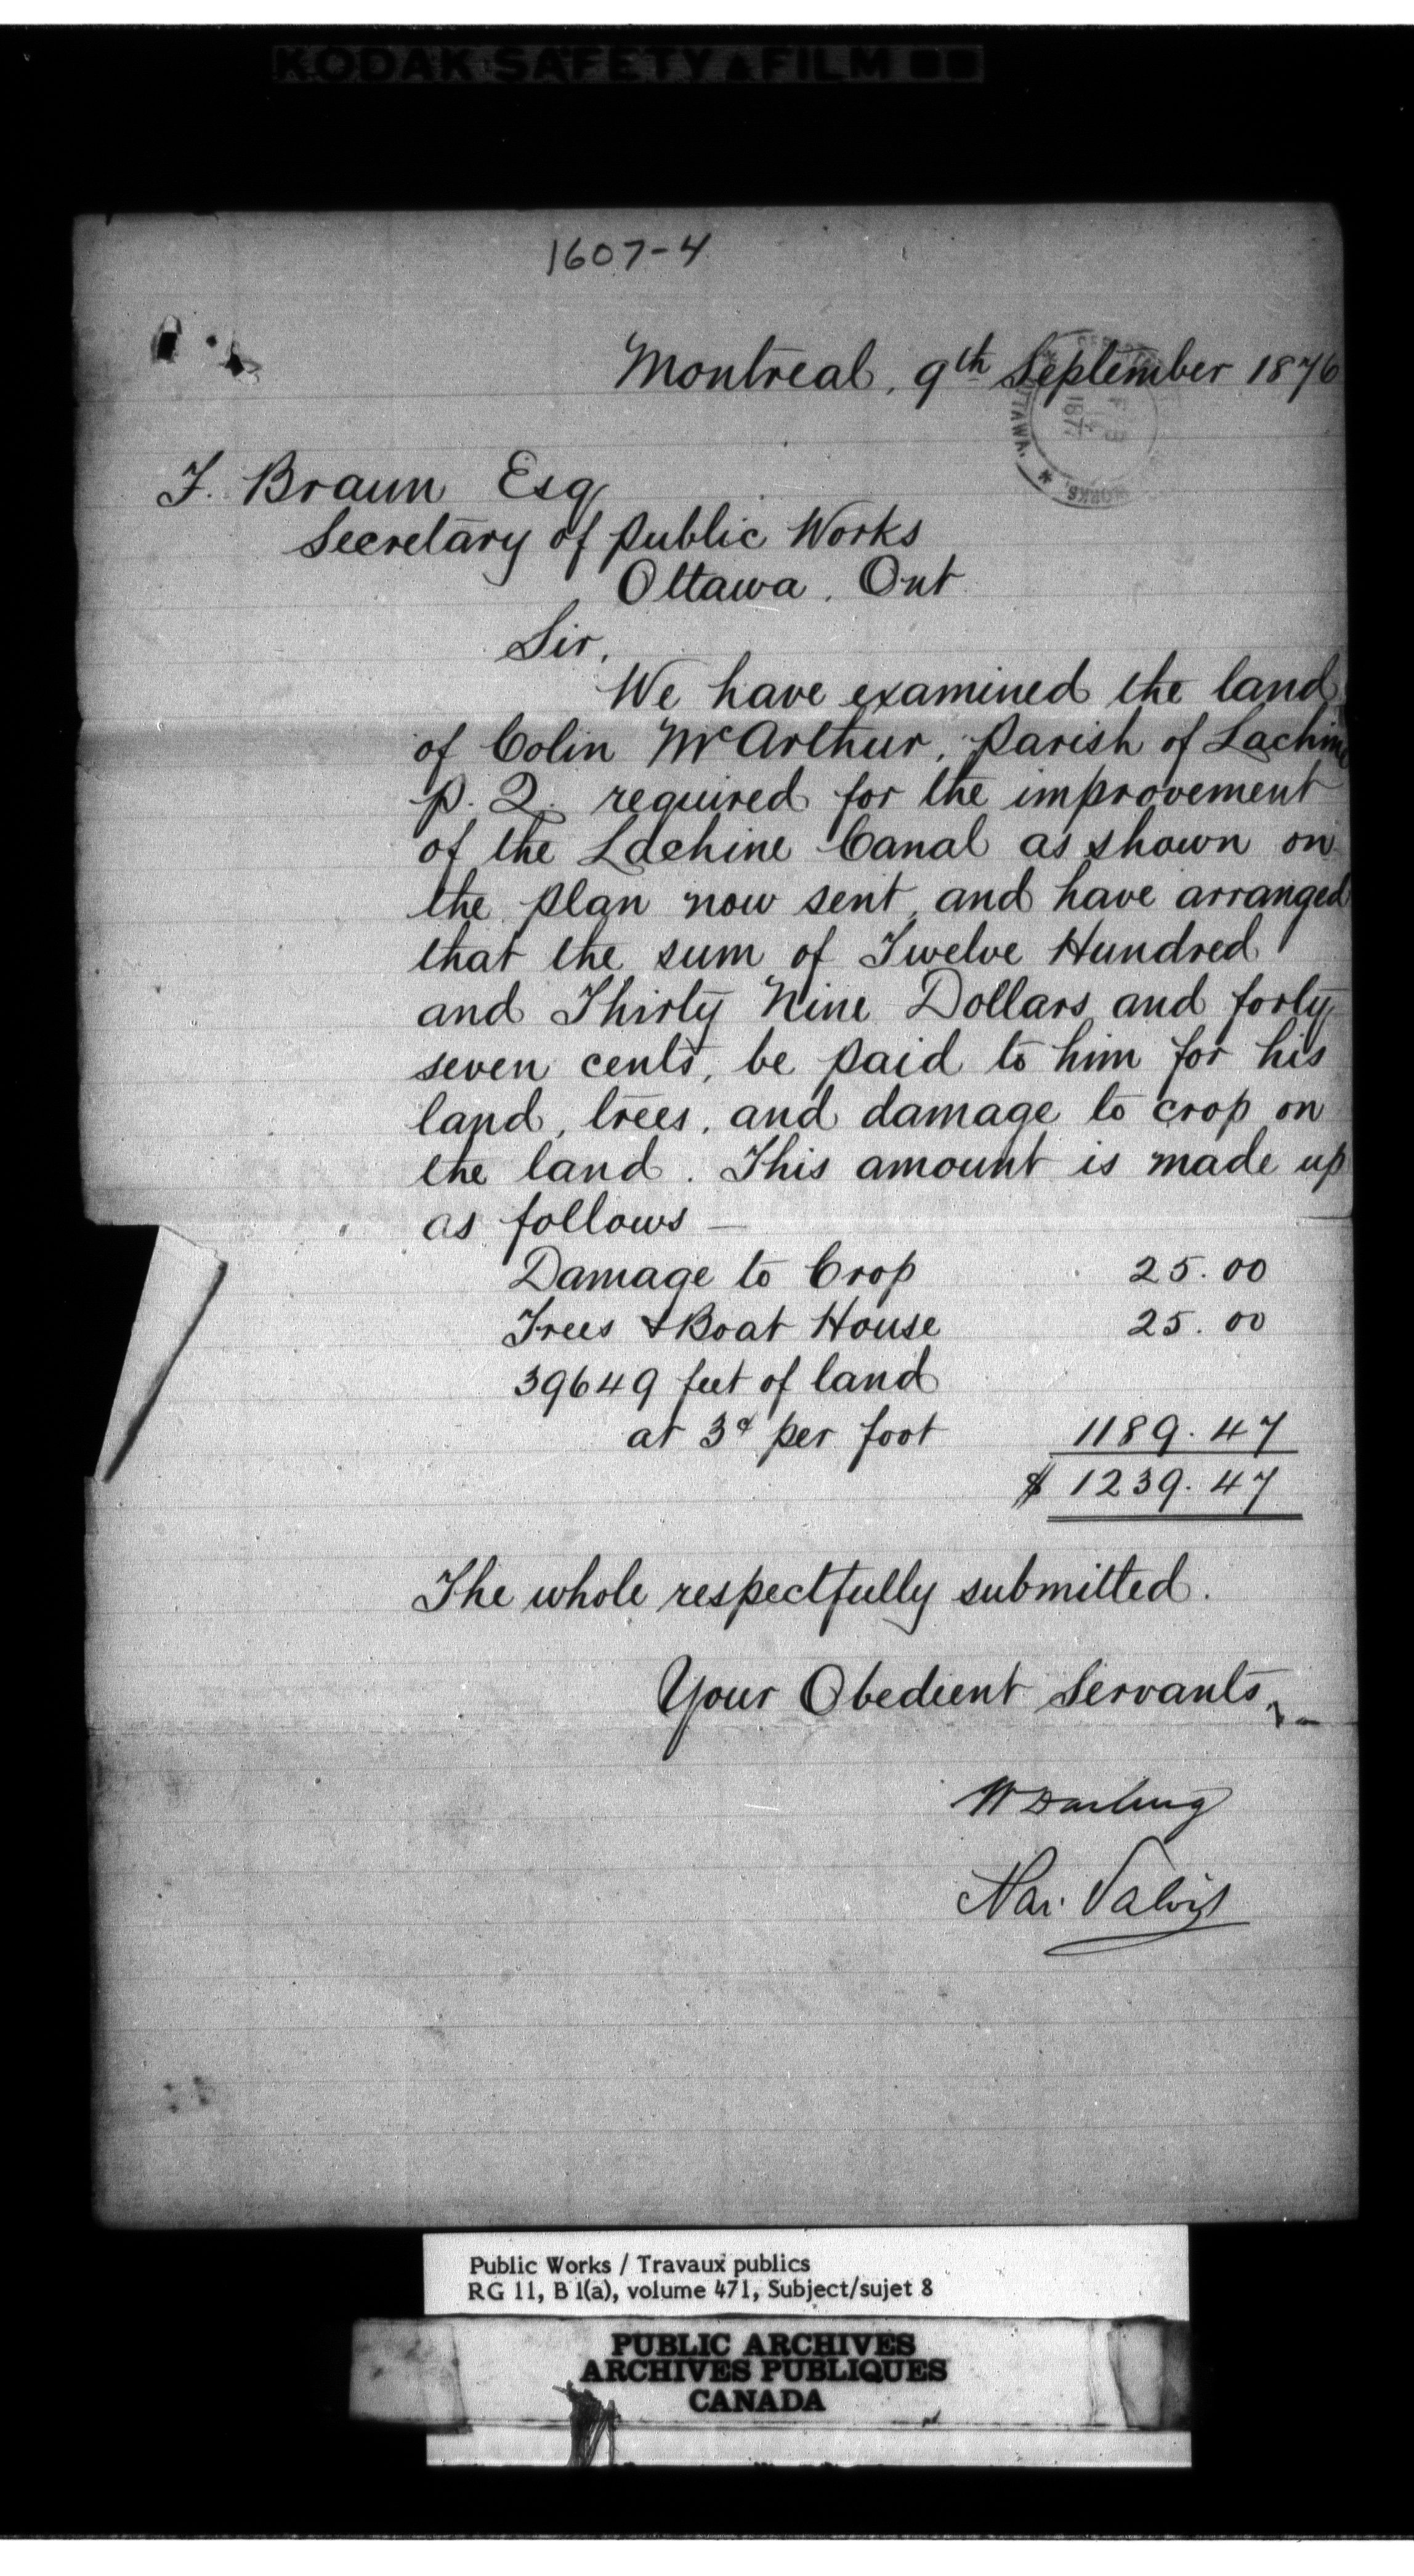 KODAK SAFETY FILM
1607-4
Montreal, 9th September 1876
F. Braun Esq
Secretary of Public Works
Ottawa. Ont
Sir,
We have examined the land
of Colin McArthur, Parish of Lachine
P. Q. required for the improvement
of the Lachine Canal as shown on
the plan now sent, and have arranged
that the sum of Twelve Hundred
and Thirty Nine Dollars and forty
seven cents, be paid to him for his
land, trees, and damage to crop on
the land. This amount is made up
as follows —
Damage to Crop 25.00
Trees & Boat House 25.00
39649 feet of land
at 3¢ per foot 1189.47
$ 1239.47
The whole respectfully submitted.
Your Obedient Servants,
W Darling
Nar. Valois
OTTAWA
WORKS
187
Public Works / Travaux publics
RG 11, B 1(a), volume 471, Subject/sujet 8
PUBLIC ARCHIVES
ARCHIVES PUBLIQUES
CANADA